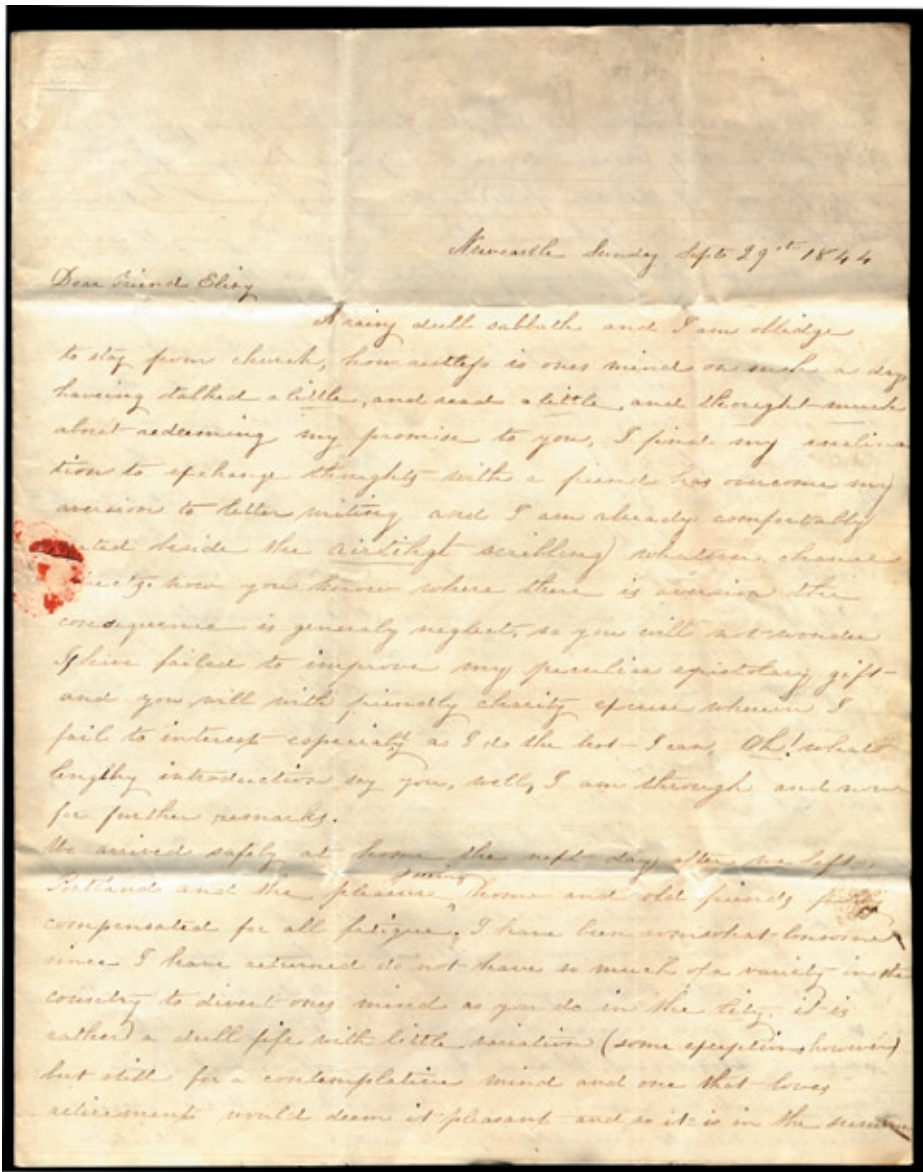 Newcastle Sunday Septr 29th 1844
Dear Friend Elizy
A rainy dull sabbath and I am oblidge
to stay from church, how restless is ones mind on such a day
haveing talked a little, and read a little, and thought much
about redeeming my promise to you, I find my inclina
tion to exchange thoughts with a friend has overcome my
aversion to letter writing and I am already comfortably
beside the airtihgt scribbling whatsoever chance
now you know where there is aversion the
consequence is generaly neglect, so you will not wonder
I have failed to improve my peculiar epistolary gift
and you will with friendly charity excuse wherein I
fail to interest especialy as I do the best I can, Oh! what
lengthy introduction say you, well, I am through and now
for further remarks.
We arrived safely at home the next day after we left
Portland and the pleasure seeing home and old friends
compensated for all fatigue, I have been somwhat lonsome
since I have returned do not have so much of a variety in the
country to divert ones mind as you do in the City, it is
rather a dull life with little variation (some exceptions however)
but still for a contemplative mind and one that loves
retirement would deem it pleasant and so it is in the summer